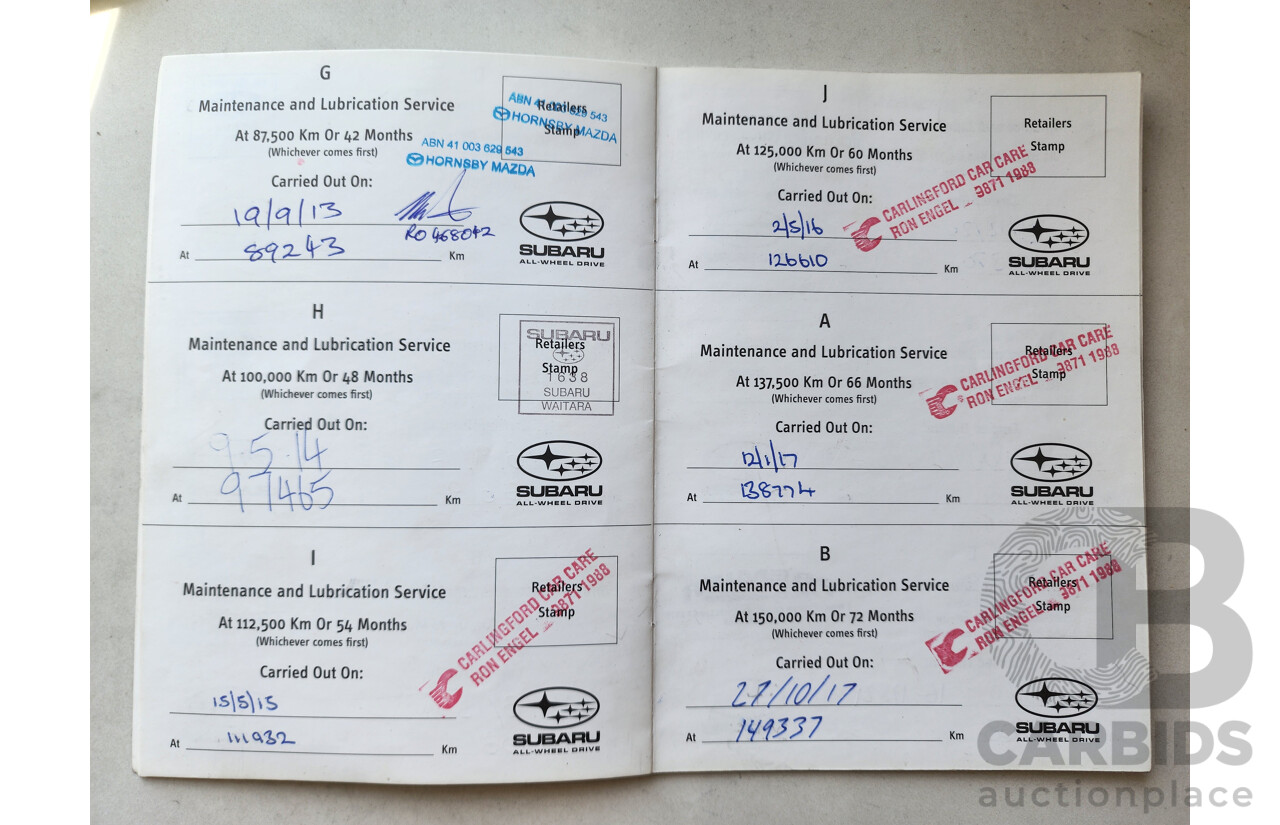 G
Maintenance and Lubrication Service
At 87,500 Km Or 42 Months
(Whichever comes first)
Carried Out On:
19/9/13
RO 468042
At 89243 Km
Retailers
Stamp
ABN 41 003 629 543
HORNSBY MAZDA
ABN 41 003 629 543
HORNSBY MAZDA
SUBARU
ALL-WHEEL DRIVE
H
Maintenance and Lubrication Service
At 100,000 Km Or 48 Months
(Whichever comes first)
Carried Out On:
9.5.14
At 97465 Km
Retailers
Stamp
SUBARU
1638
SUBARU
WAITARA
SUBARU
ALL-WHEEL DRIVE
I
Maintenance and Lubrication Service
At 112,500 Km Or 54 Months
(Whichever comes first)
Carried Out On:
15/5/15
At 111932 Km
Retailers
Stamp
CARLINGFORD CAR CARE
RON ENGEL _ 9871 1988
SUBARU
ALL-WHEEL DRIVE
J
Maintenance and Lubrication Service
At 125,000 Km Or 60 Months
(Whichever comes first)
Carried Out On:
2/5/16
At 126610 Km
Retailers
Stamp
CARLINGFORD CAR CARE
RON ENGEL _ 9871 1988
SUBARU
ALL-WHEEL DRIVE
A
Maintenance and Lubrication Service
At 137,500 Km Or 66 Months
(Whichever comes first)
Carried Out On:
12/1/17
At 138774 Km
Retailers
Stamp
CARLINGFORD CAR CARE
RON ENGEL _ 9871 1988
SUBARU
ALL-WHEEL DRIVE
B
Maintenance and Lubrication Service
At 150,000 Km Or 72 Months
(Whichever comes first)
Carried Out On:
27/10/17
At 149337 Km
Retailers
Stamp
CARLINGFORD CAR CARE
RON ENGEL _ 9871 1988
SUBARU
ALL-WHEEL DRIVE
CB
CARBIDS
auctionplace